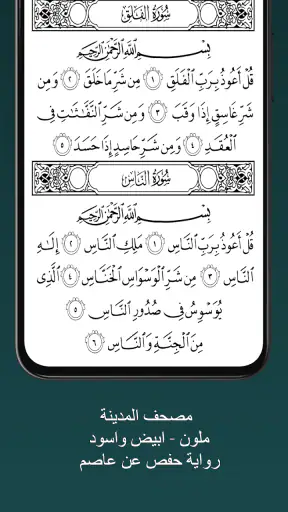 سُورَةُ الفَلَقِ
بِسْمِ اللَّهِ الرَّحْمَٰنِ الرَّحِيمِ
قُلْ أَعُوذُ بِرَبِّ الْفَلَقِ ١ مِن شَرِّ مَا خَلَقَ ٢ وَمِن
شَرِّ غَاسِقٍ إِذَا وَقَبَ ٣ وَمِن شَرِّ النَّفَّـٰثَـٰتِ فِى
الْعُقَدِ ٤ وَمِن شَرِّ حَاسِدٍ إِذَا حَسَدَ ٥
سُورَةُ النَّاسِ
بِسْمِ اللَّهِ الرَّحْمَٰنِ الرَّحِيمِ
قُلْ أَعُوذُ بِرَبِّ النَّاسِ ١ مَلِكِ النَّاسِ ٢ إِلَـٰهِ
النَّاسِ ٣ مِن شَرِّ الْوَسْوَاسِ الْخَنَّاسِ ٤ الَّذِى
يُوَسْوِسُ فِى صُدُورِ النَّاسِ ٥
مِنَ الْجِنَّةِ وَالنَّاسِ ٦
مصحف المدينة
ملون - ابيض واسود
رواية حفص عن عاصم